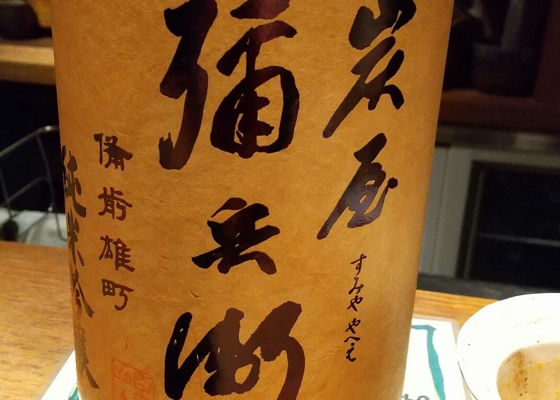 炭屋
彌兵衛
すみや やへえ
備前雄町
純米吟醸